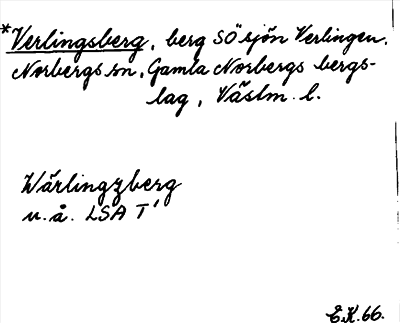 *Verlingsberg, berg SÖ sjön Verlingen.
Norbergs sn, Gamla Norbergs bergs-
lag, Västm. l.
Wärlingzberg
u.å. LSA T'
E.K.66.